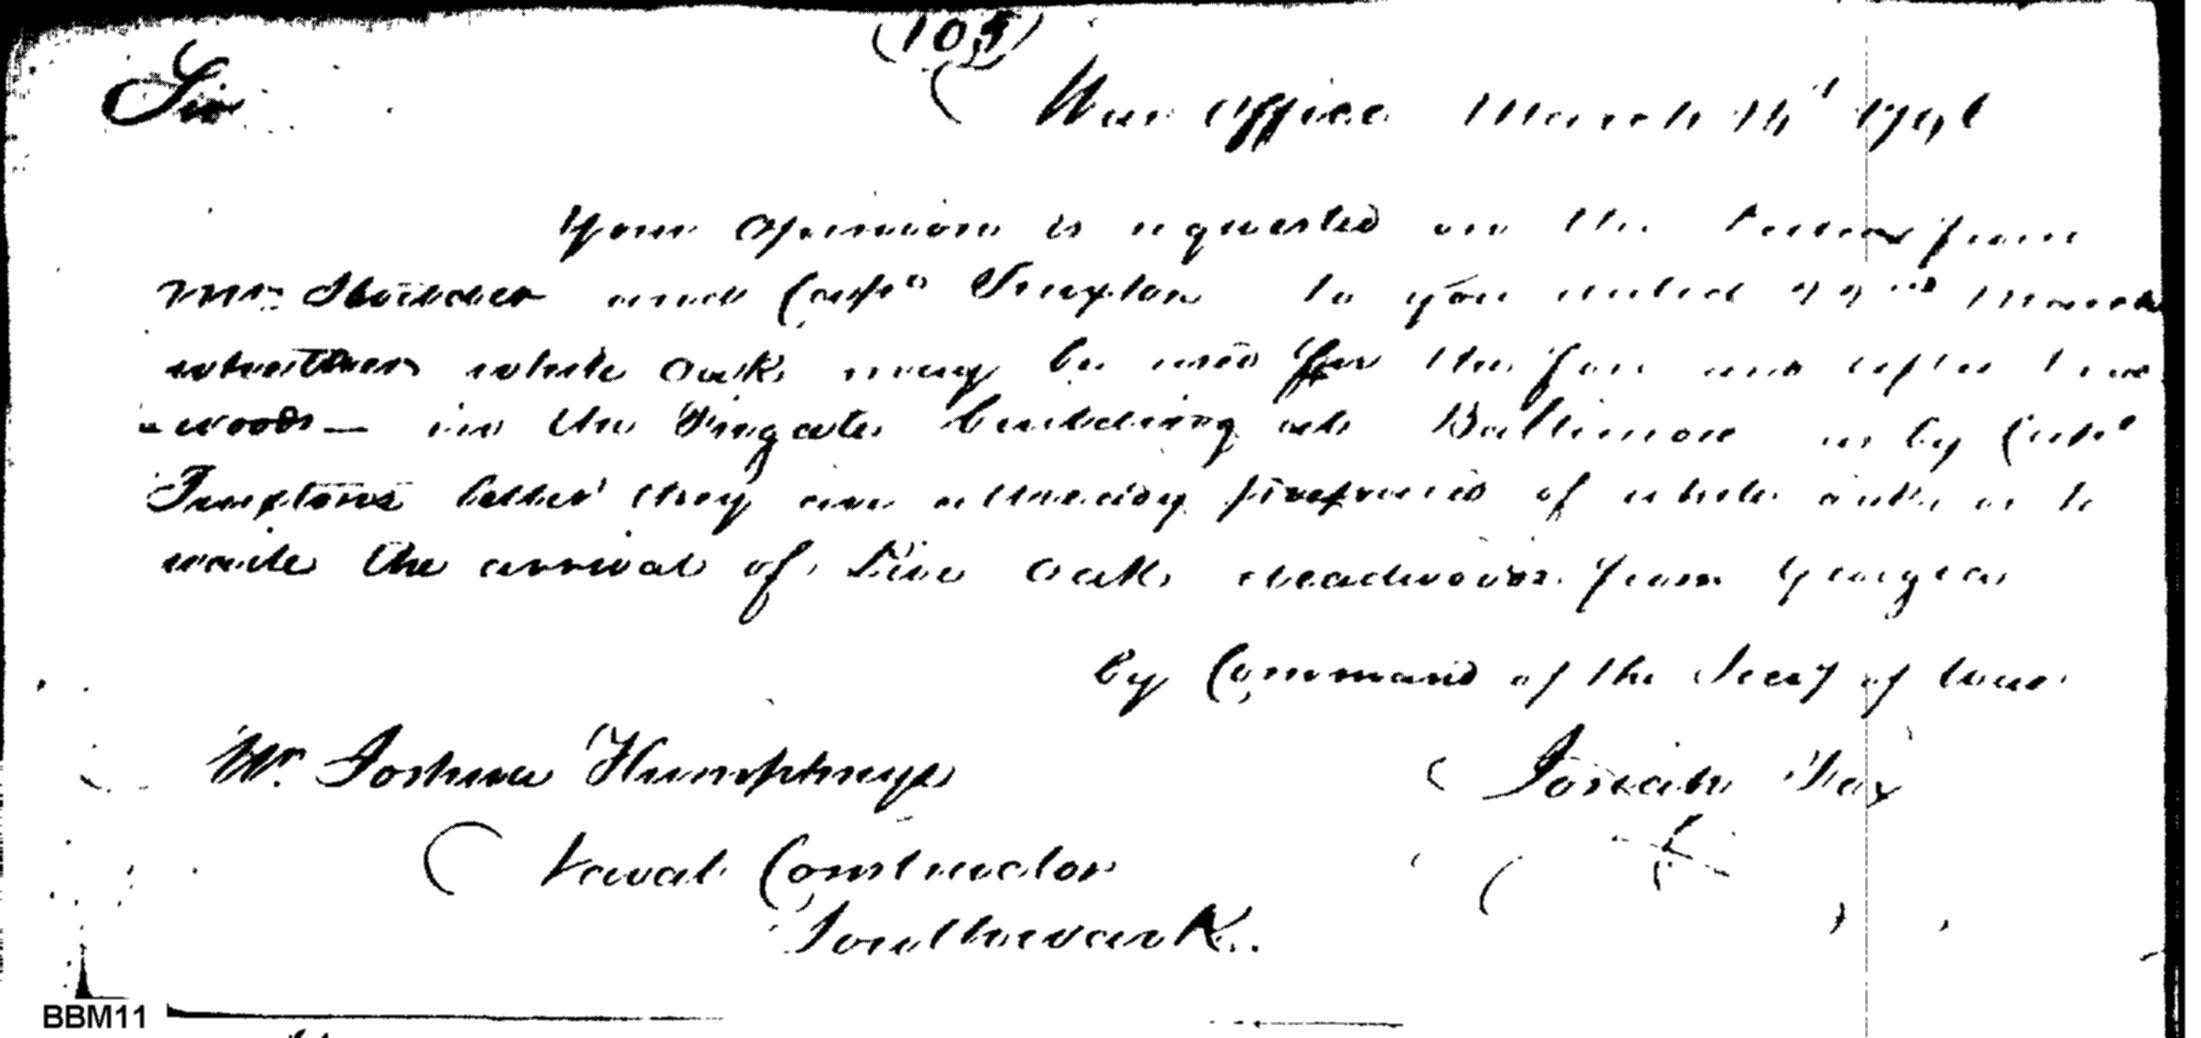 (105)
Sir
War Office March 14th 1796
Your opinion is requested on the Letters from
Mr Stodder and Capn Truxton to you dated March
whether white oak may be used for the fore and after dead
-woods— in the Frigate building at Baltimore as by Capt
Truxtons letter they are already prepared of white oak, or to
waite the arrival of Live oak deadwoods from Georgia
by Command of the Secy of War
Mr. Joshua Humphreys
Josiah Fox
Naval Constructor
Southwark.
BBM11